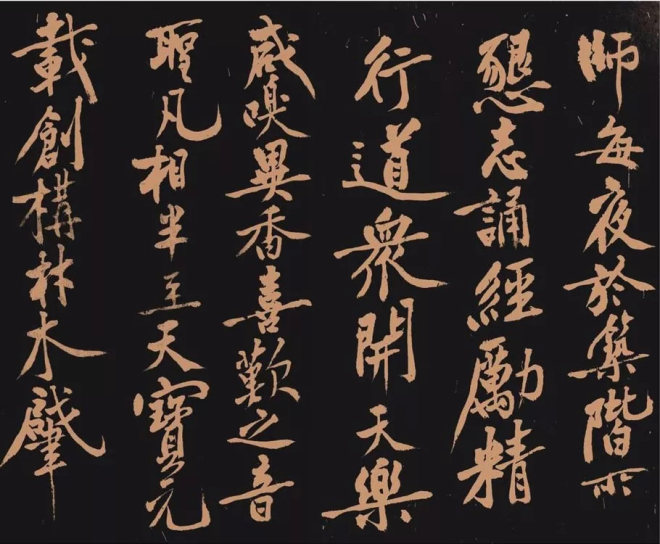 師每夜於築階所
懇志誦經勵精
行道衆聞天樂
咸嗅異香喜歎之音
聖凡相半至天寶元
載創構材木肇